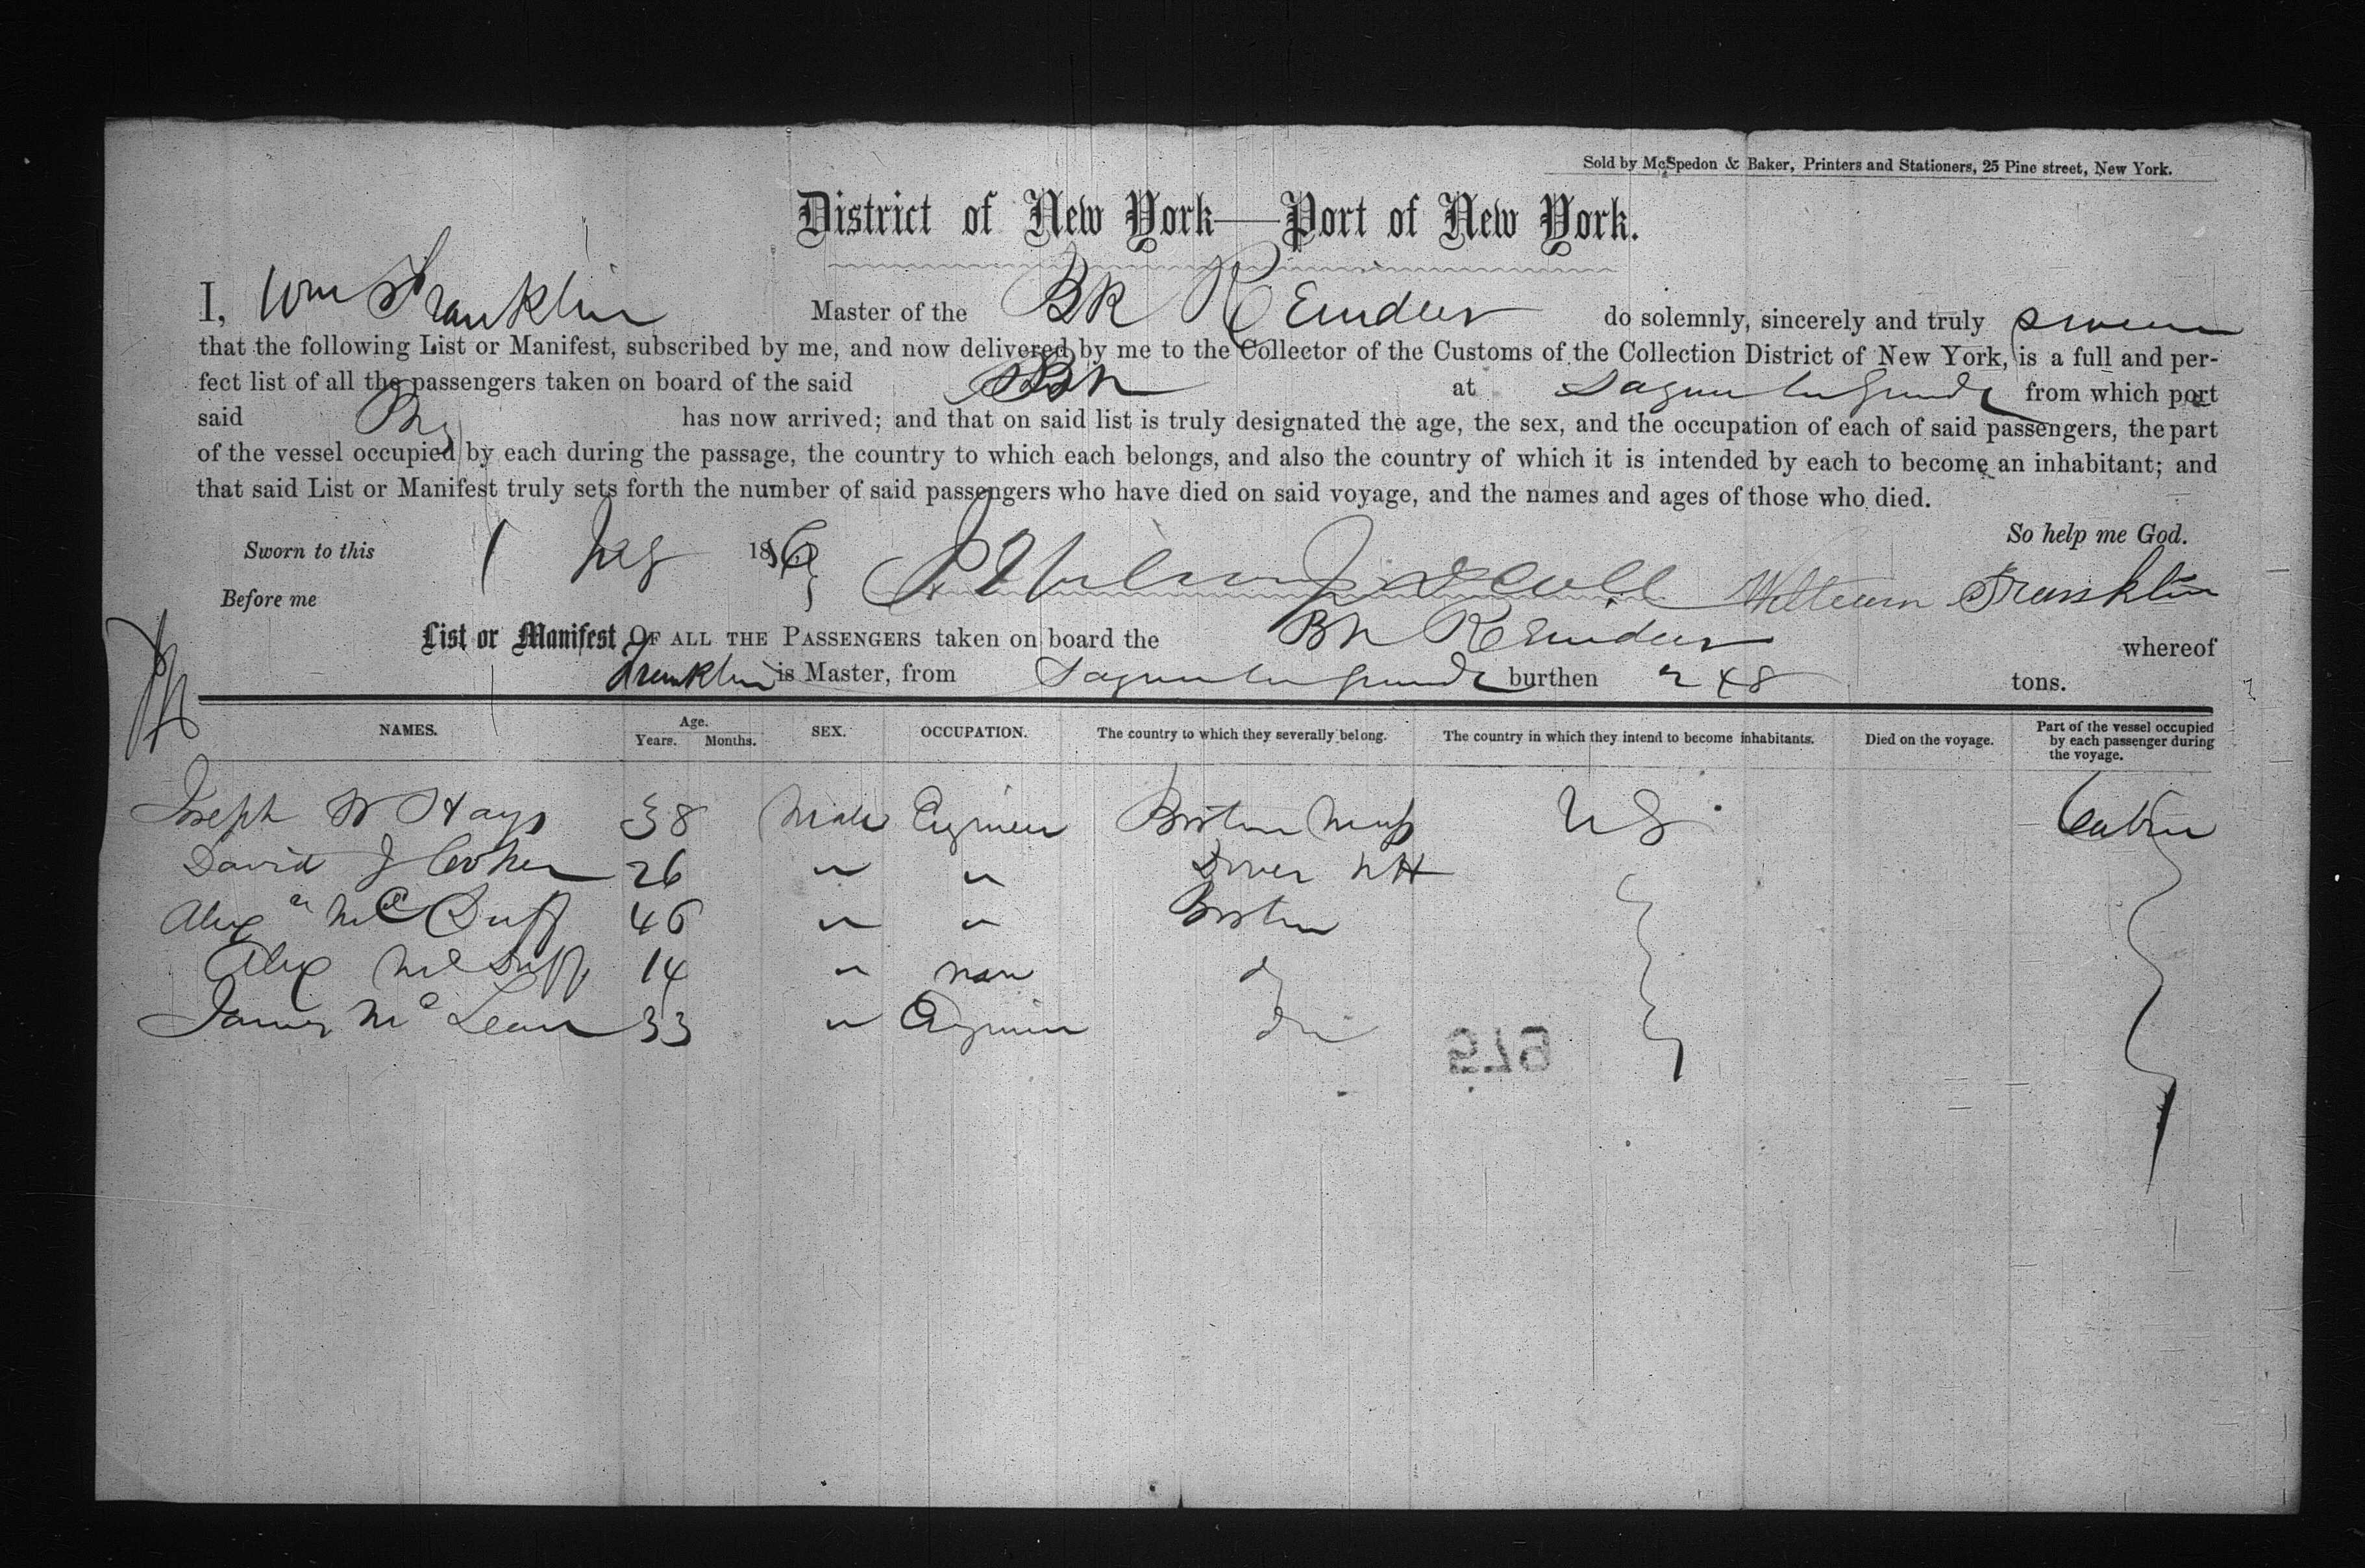 Sold by McSpedon & Baker, Printers and Stationers, 25 Pine street, New York.
District of New York—Port of New York.
I, Wm Franklin Master of the BK REindeer do solemnly, sincerely and truly swear
that the following List or Manifest, subscribed by me, and now delivered by me to the Collector of the Customs of the Collection District of New York, is a full and per-
fect list of all the passengers taken on board of the said at Sagua la Grande from which port
said has now arrived; and that on said list is truly designated the age, the sex, and the occupation of each of said passengers, the part
of the vessel occupied by each during the passage, the country to which each belongs, and also the country of which it is intended by each to become an inhabitant; and
that said List or Manifest truly sets forth the number of said passengers who have died on said voyage, and the names and ages of those who died.
So help me God.
Sworn to this 1 186
Before me William Franklin
List or Manifest OF ALL THE PASSENGERS taken on board the REindeer whereof
Franklin is Master, from Sagua la Grande burthen 248 tons.
NAMES. Age. Years. Months. SEX. OCCUPATION. The country to which they severally belong. The country in which they intend to become inhabitants. Died on the voyage. Part of the vessel occupied by each passenger during the voyage.
Joseph W Hays 38 Male Engineer Boston Mass US Cabin
David J 26 " " Dover NH
Alex McDuff 46 " " Boston
Alex McDuff 14 " non do
James Mc Lean 33 " Engineer do
579